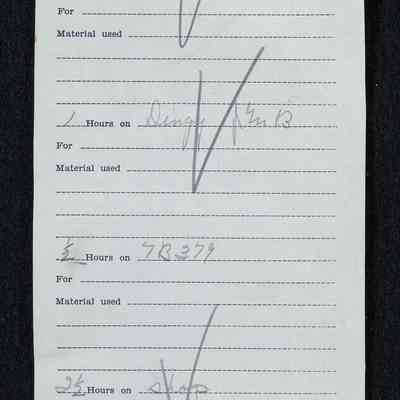 For
Material used
1 Hours on Dingy
For
Material used
½ Hours on 7B379
For
Material used
2½ Hours on shop